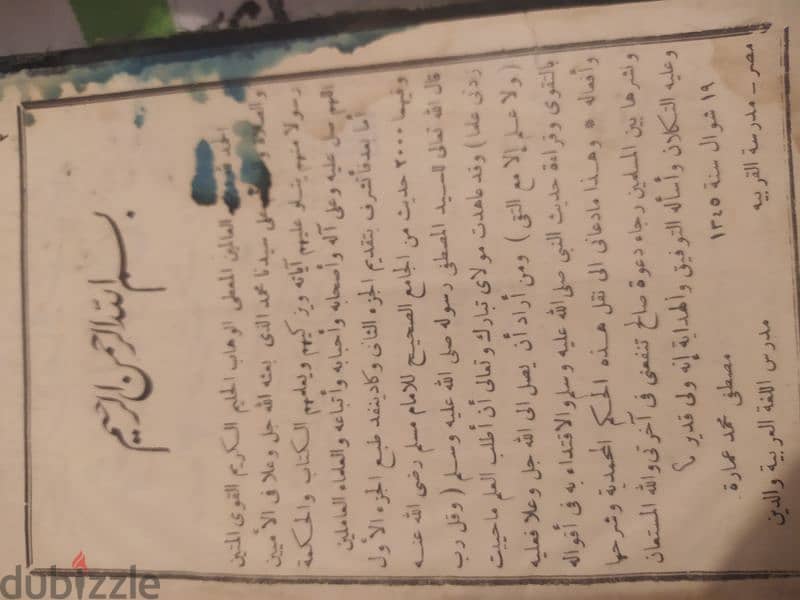 بسم الله الرحمن الرحيم
الحمد لله رب العالمين المعطى الوهاب الحليم الكريم القوى المتين
والصلاة والسلام على سيدنا محمد الذى بعثه الله جل وعلا فى الأميين
رسولا منهم يتلو عليهم آياته ويزكيهم ويعلمهم الكتاب والحكمة
اللهم صل عليه وعلى آله وأصحابه وأحبابه وأتباعه والعلماء العاملين
أما بعد فأتشرف بتقديم الجزء الثانى وكاد ينفد طبع الجزء الأول
وفيهما ٢٠٠٠ حديث من الجامع الصحيح للامام مسلم رضى الله عنه
قال الله تعالى للسيد المصطفى رسوله صلى الله عليه وسلم ( وقل رب
زدنى علما ) وقد عاهدت مولاى تبارك وتعالى أن أطلب العلم ما حييت
( ولا علم إلا مع التقى ) ومن أراد أن يصل الى الله جل وعلا فعليه
بالتقوى وقراءة حديث النبى صلى الله عليه وسلم والاقتداء به فى أقواله
وأفعاله * وهذا مادعانى الى نقل هذه الحكم المحمدية وشرحها
ونشرها بين المسلمين رجاء دعوة صالح تنفعنى فى آخرتى والله المستعان
وعليه التكلان وأسأله التوفيق والهداية إنه ولى قدير ؟
١٩ شوال سنة ١٣٤٥
مصطفى محمد عمارة
مصر - مدرسة القربيه
مدرس اللغة العربية والدين
dubizzle